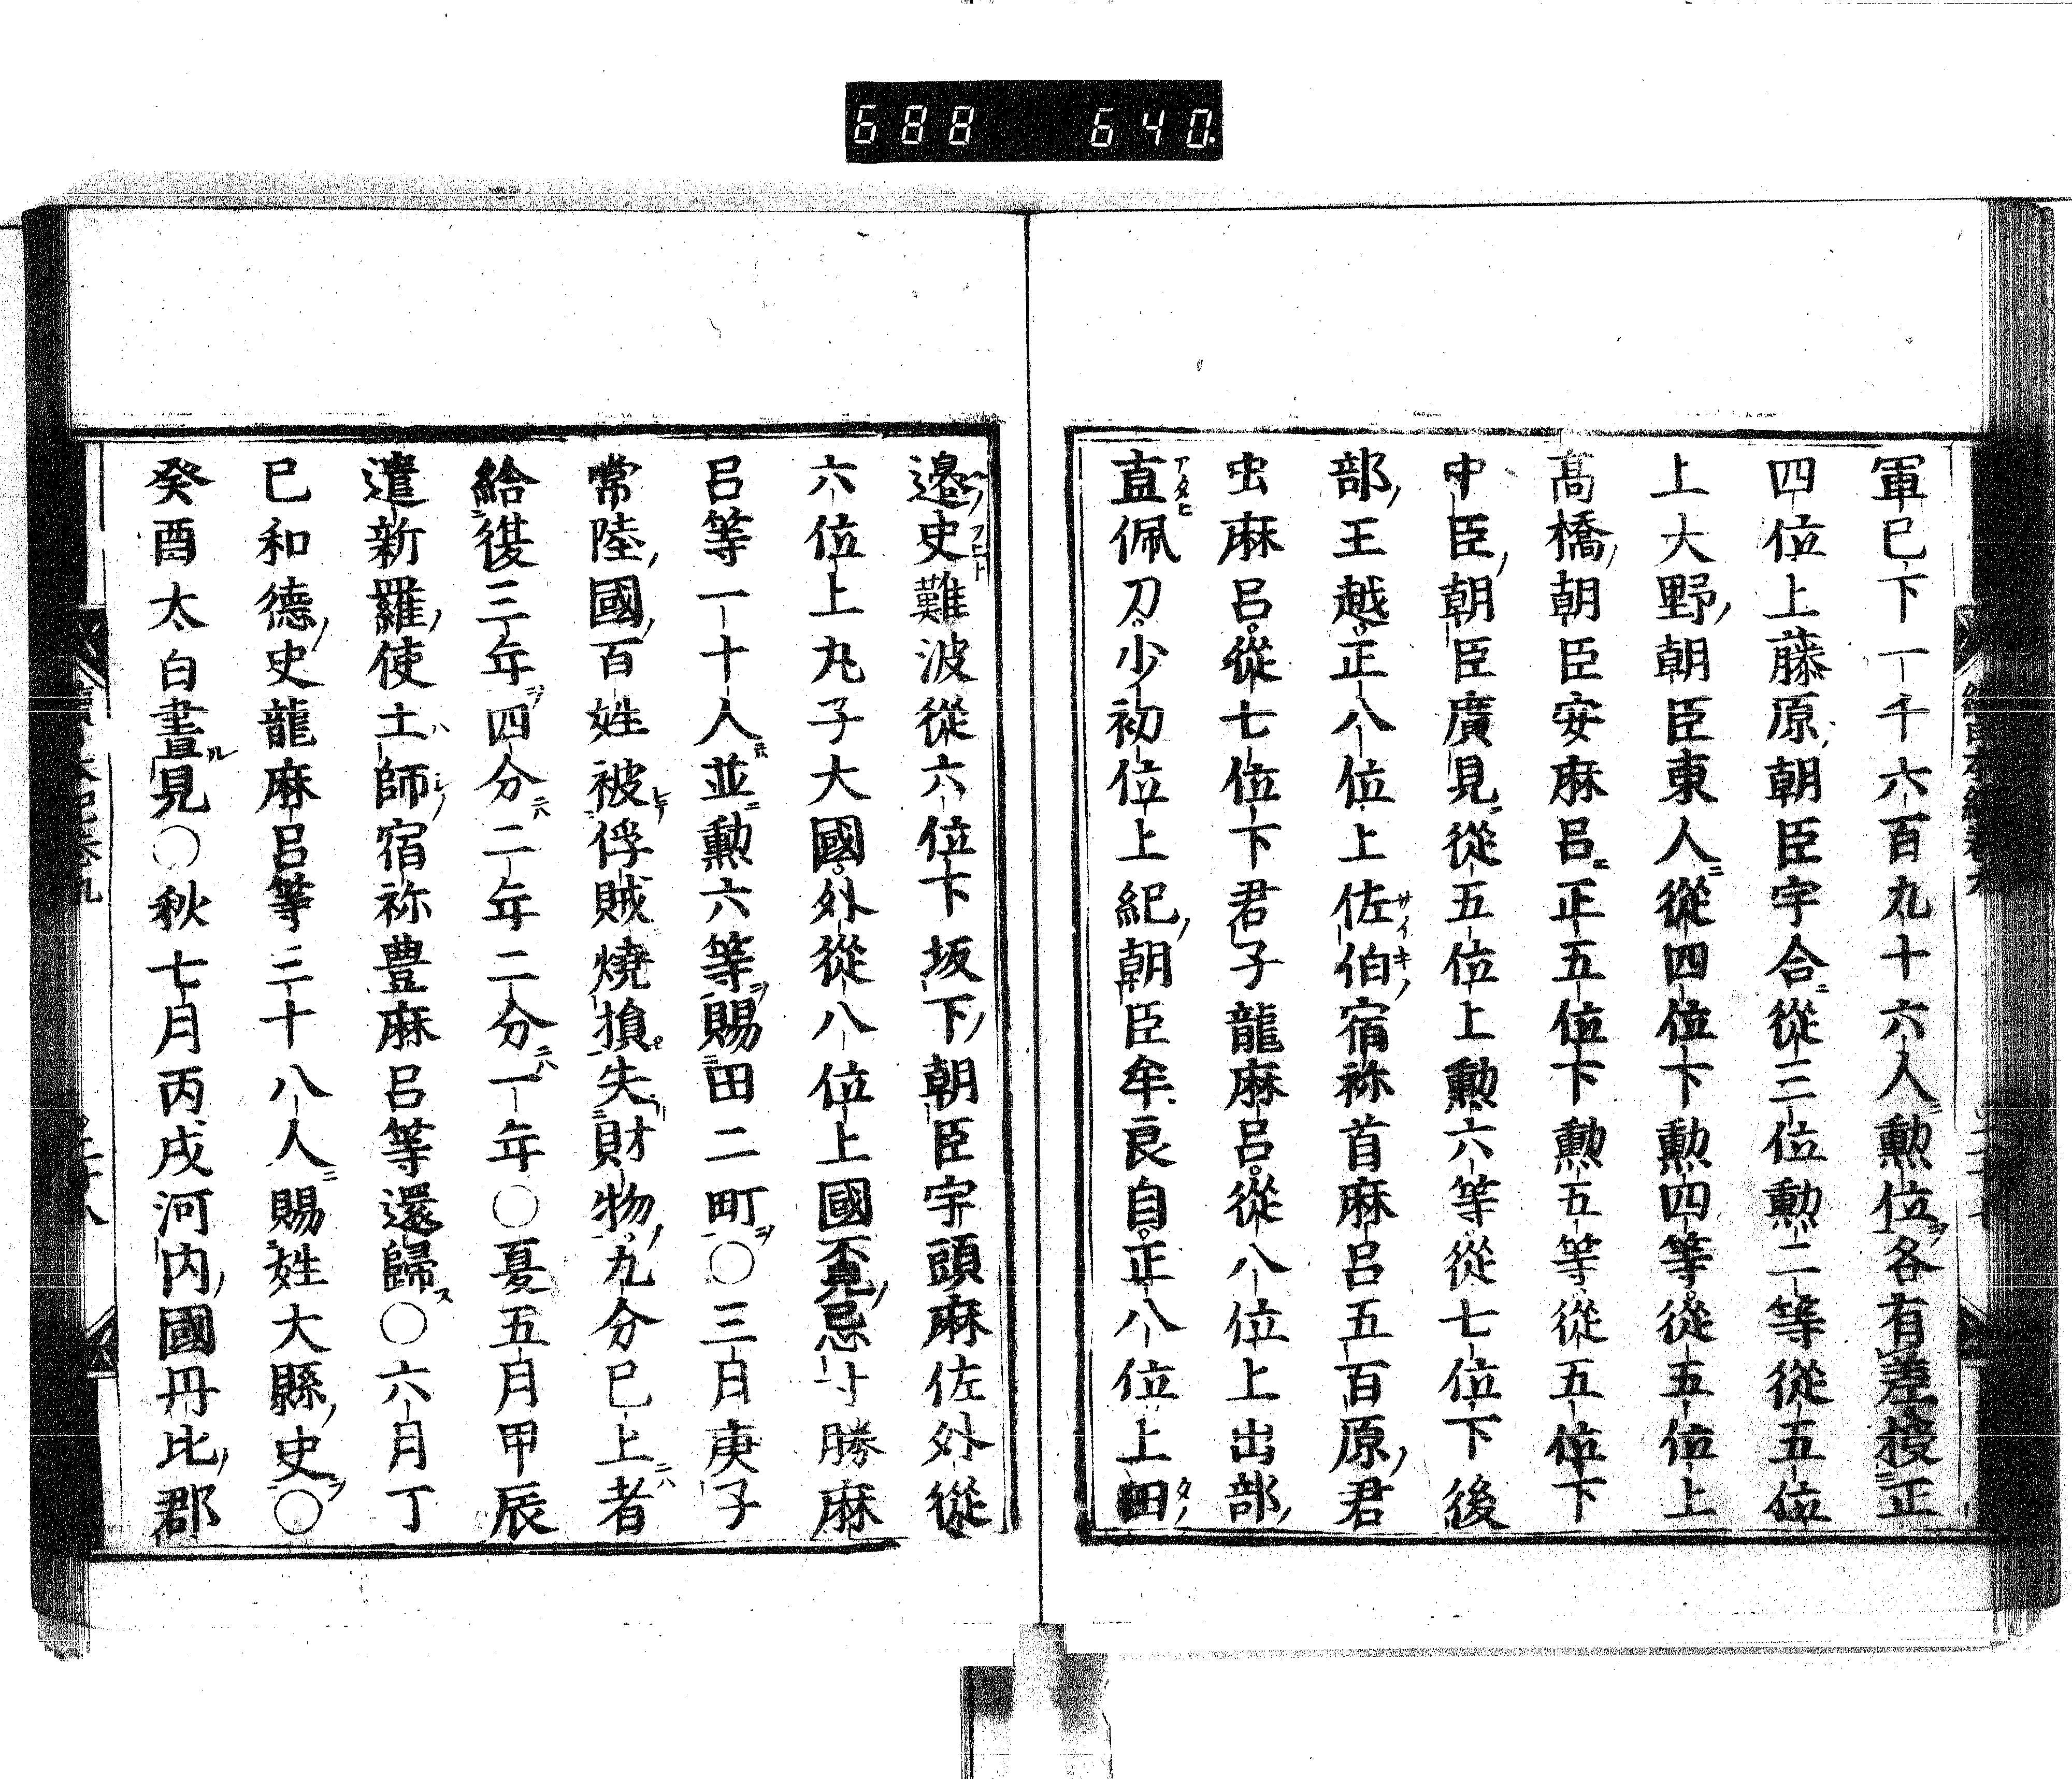 688 640
軍已下一千六百九十六人勲位各有差授正
四位上藤原朝臣宇合從三位勲二等從五位
上大野朝臣東人從四位下勲四等從五位上
髙橋朝臣安麻呂正五位下勲五等從五位下
中臣朝臣廣見從五位上勲六等從七位下後
部王越正八位上佐伯宿祢首麻呂五百原君
虫麻呂從七位下君子龍麻呂從八位上出部
直佩刀少初位上紀朝臣牟良自正八位上田
邉史難波從六位下坂下朝臣宇頭麻佐外從
六位上丸子大國外從八位上國覔忌寸勝麻
呂等一十人並勲六等賜田二町〇三月庚子
常陸國百姓被俘賊燒損失財物九分已上者
給復三年四分二年二分一年〇夏五月甲辰
遣新羅使土師宿祢豊麻呂等還歸〇六月丁
巳和德史龍麻呂等三十八人賜姓大縣史〇
癸酉太白晝見〇秋七月丙戌河内國丹比郡